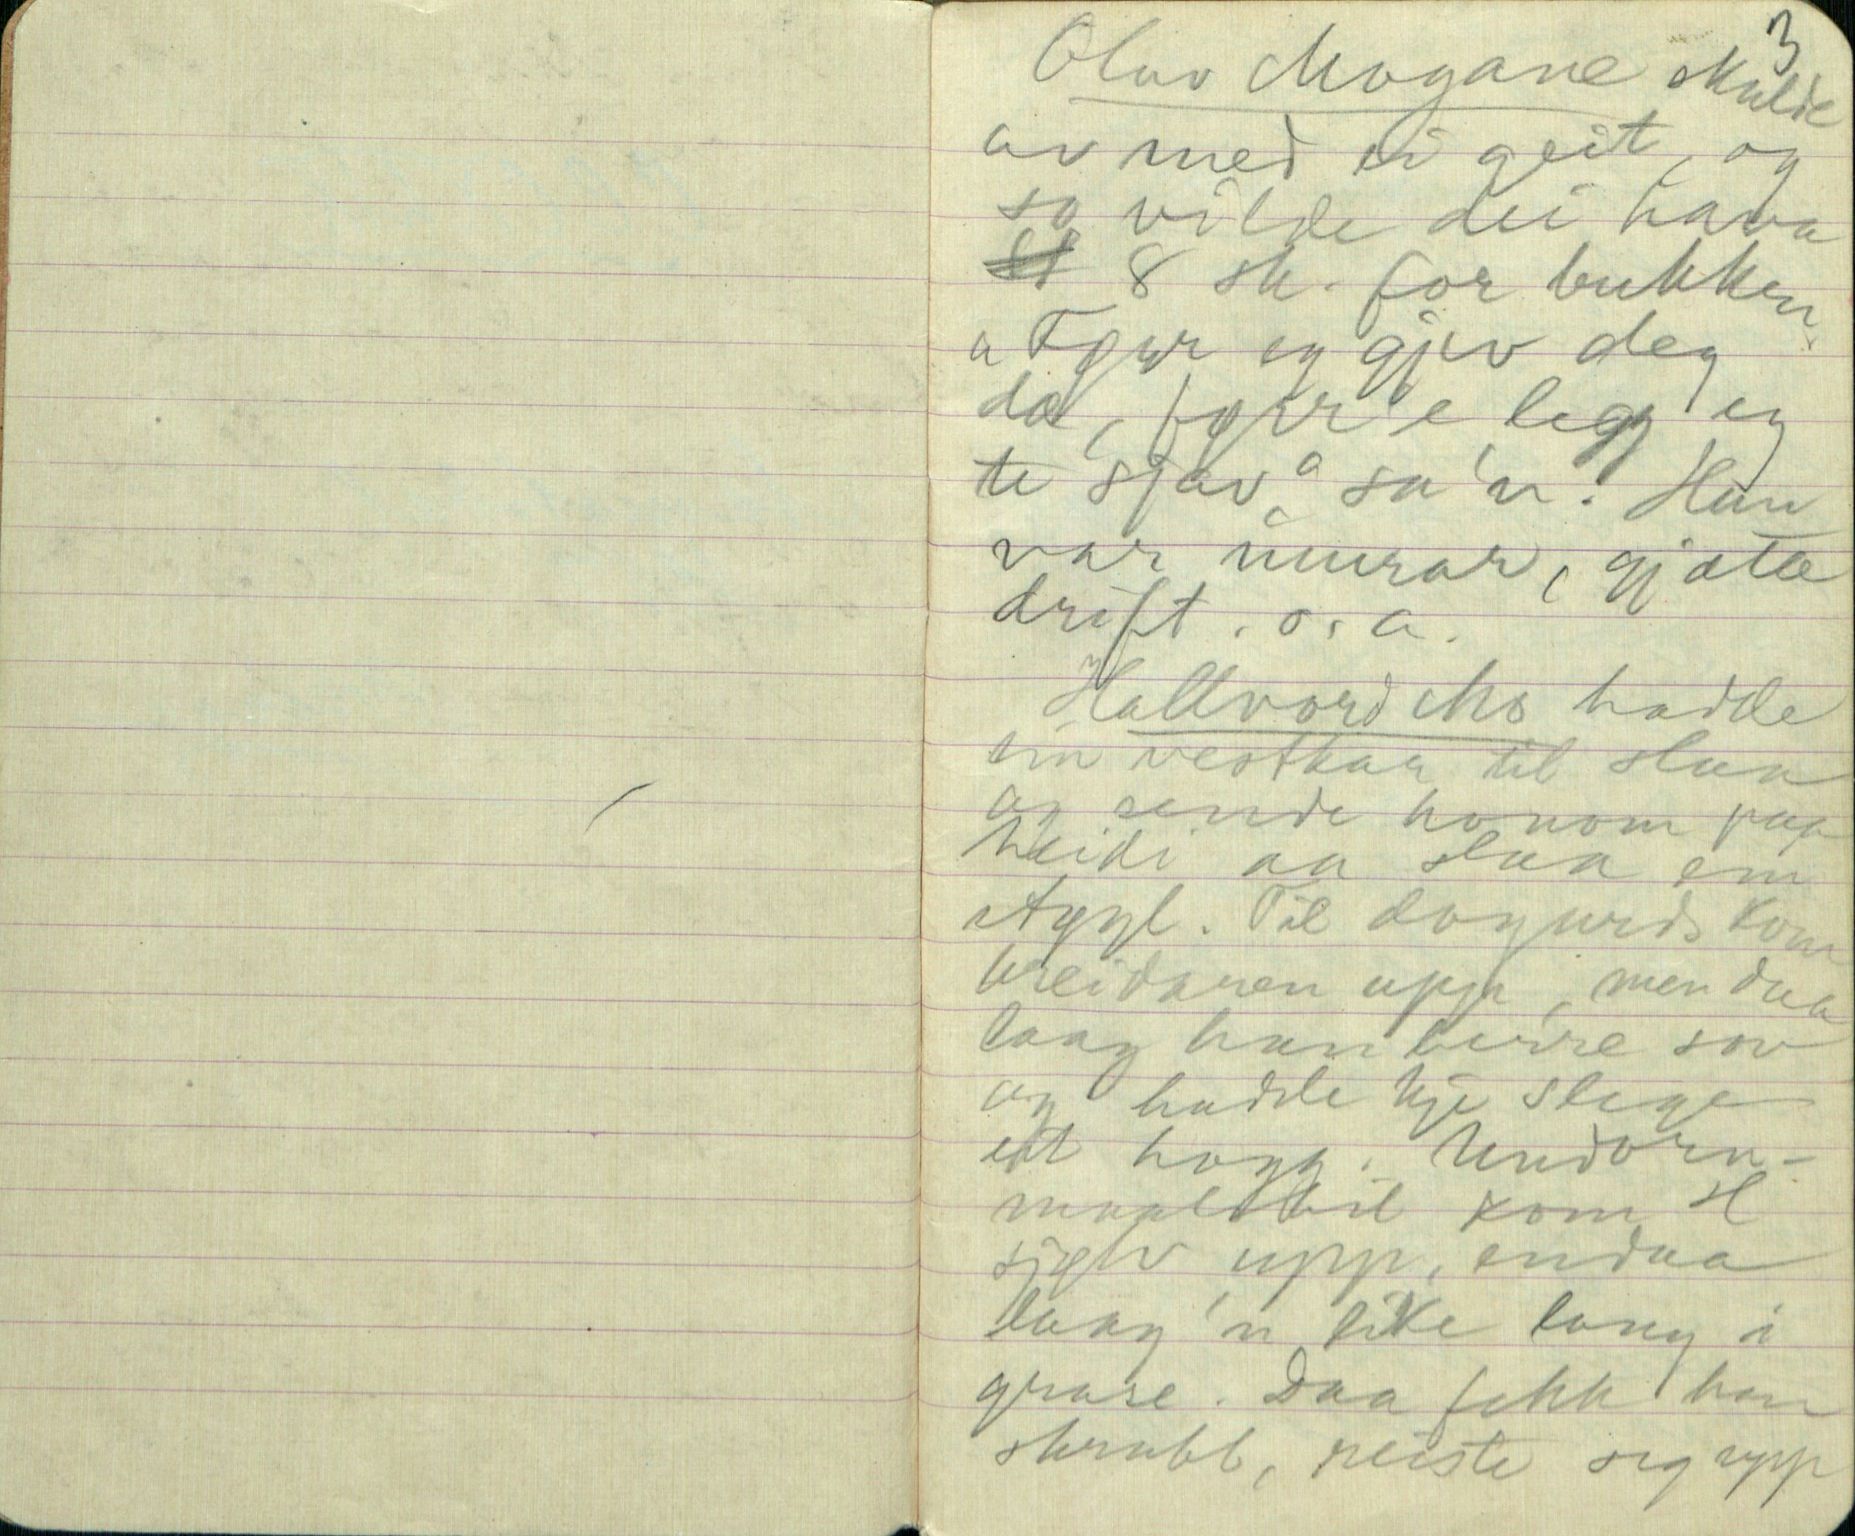 3
Olav Mogane skulde
av med ei geit, og
so vilde dei hava
8 sk. for bukken
"Fyrr eg gjev deg
dæ, fyrr'e legg eg
te sjøv" sa'n. Han
var murar, gjætte
drift. o. a.
Hallvord Mo hadde
ein vestkar til slaa
og sende honom paa
heidi aa slaa em
støyl. Til dogurds kom
breidaren upp, men daa
laag han berre sov
og hadde kje slege
eit hogg. Undorn-
maalsbil kom H
sjølv upp, endaa
laag'n like lang i
grase. Daa fekk han
skrubb, reiste seg upp